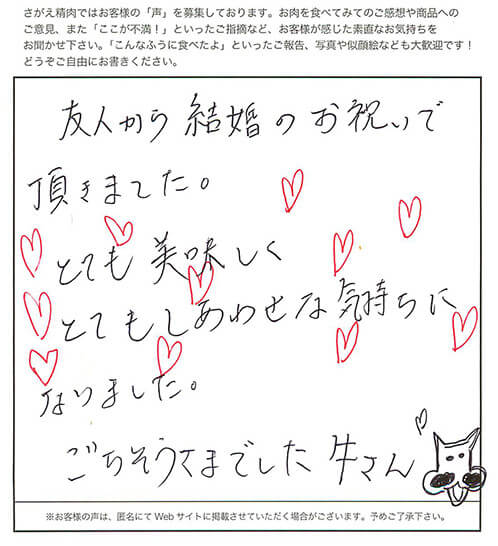 さがえ精肉ではお客様の「声」を募集しております。お肉を食べてみてのご感想や商品への
ご意見、また「ここが不満!」といったご指摘など、お客様が感じた素直なお気持ちを
お聞かせ下さい。「こんなふうに食べたよ」といったご報告、写真や似顔絵なども大歓迎です!
どうぞご自由にお書きください。
友人から結婚のお祝いで
頂きました。
とても美味しく
とてもしあわせな気持ちに
なりました。
ごちそうさまでした牛さん
※お客様の声は、匿名にてWebサイトに掲載させていただく場合がございます。予めご了承下さい。